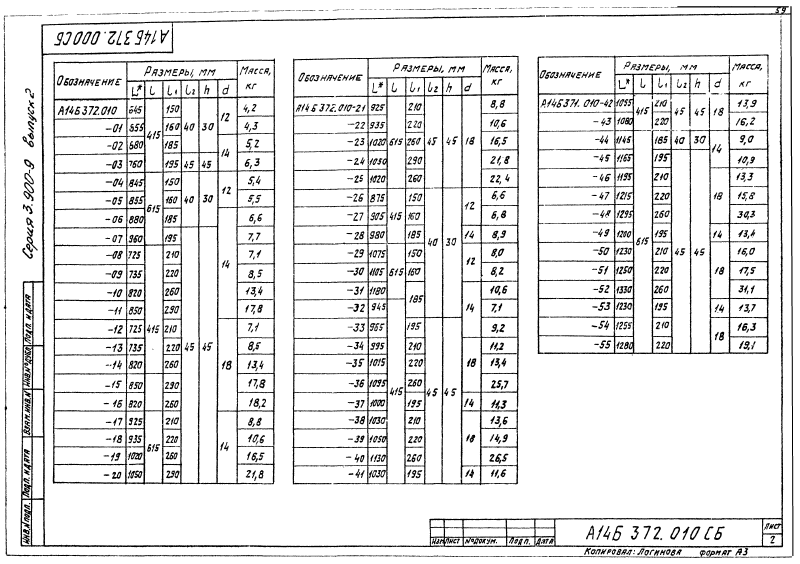 59
А14Б 372.000 СБ
Серия 3.900-9 выпуск 2
Обозначение Размеры, мм Масса, кг
L* l l₁ l₂ h d
А14Б372.010 645 415 150 40 30 12 4,2
-01 655 160 4,3
-02 680 185 14 5,2
-03 760 195 45 45 6,3
-04 845 615 150 40 30 12 5,4
-05 855 160 5,5
-06 880 185 14 6,6
-07 960 195 45 45 7,7
-08 725 415 210 7,1
-09 735 220 8,5
-10 820 260 13,4
-11 850 290 17,8
-12 725 210 18 7,1
-13 735 220 8,5
-14 820 260 13,4
-15 850 290 17,8
-16 820 260 18,2
-17 925 615 210 14 8,8
-18 935 220 10,6
-19 1020 260 16,5
-20 1050 290 21,8
Обозначение Размеры, мм Масса, кг
L* l l₁ l₂ h d
А14Б372.010-21 925 615 210 45 45 18 8,8
-22 935 220 10,6
-23 1020 260 16,5
-24 1050 290 21,8
-25 1020 260 22,4
-26 875 415 150 40 30 12 6,6
-27 905 160 6,8
-28 980 185 14 8,9
-29 1075 615 150 12 8,0
-30 1105 160 8,2
-31 1180 185 14 10,6
-32 945 415 7,1
-33 955 195 45 45 9,2
-34 995 210 18 11,2
-35 1015 220 13,4
-36 1095 260 25,7
-37 1000 195 14 11,3
-38 1030 210 18 13,6
-39 1050 220 14,9
-40 1130 260 26,5
-41 1030 195 14 11,6
Обозначение Размеры, мм Масса, кг
L* l l₁ l₂ h d
А14Б371.010-42 1055 415 210 45 45 18 13,9
-43 1080 220 16,2
-44 1145 615 185 40 30 14 9,0
-45 1165 195 45 45 10,9
-46 1195 210 18 13,3
-47 1215 220 15,8
-48 1295 260 30,3
-49 1200 195 14 13,4
-50 1230 210 18 16,0
-51 1250 220 17,5
-52 1330 260 31,1
-53 1230 195 14 13,7
-54 1255 210 18 16,3
-55 1280 220 19,1
Инв.№ подл. Подп. и дата Взам.инв.№ Инв.№ дубл. Подп. и дата
Изм Лист №докум. Подп. Дата
А14Б 372.010 СБ
Лист
2
Копировал: Логинова формат А3